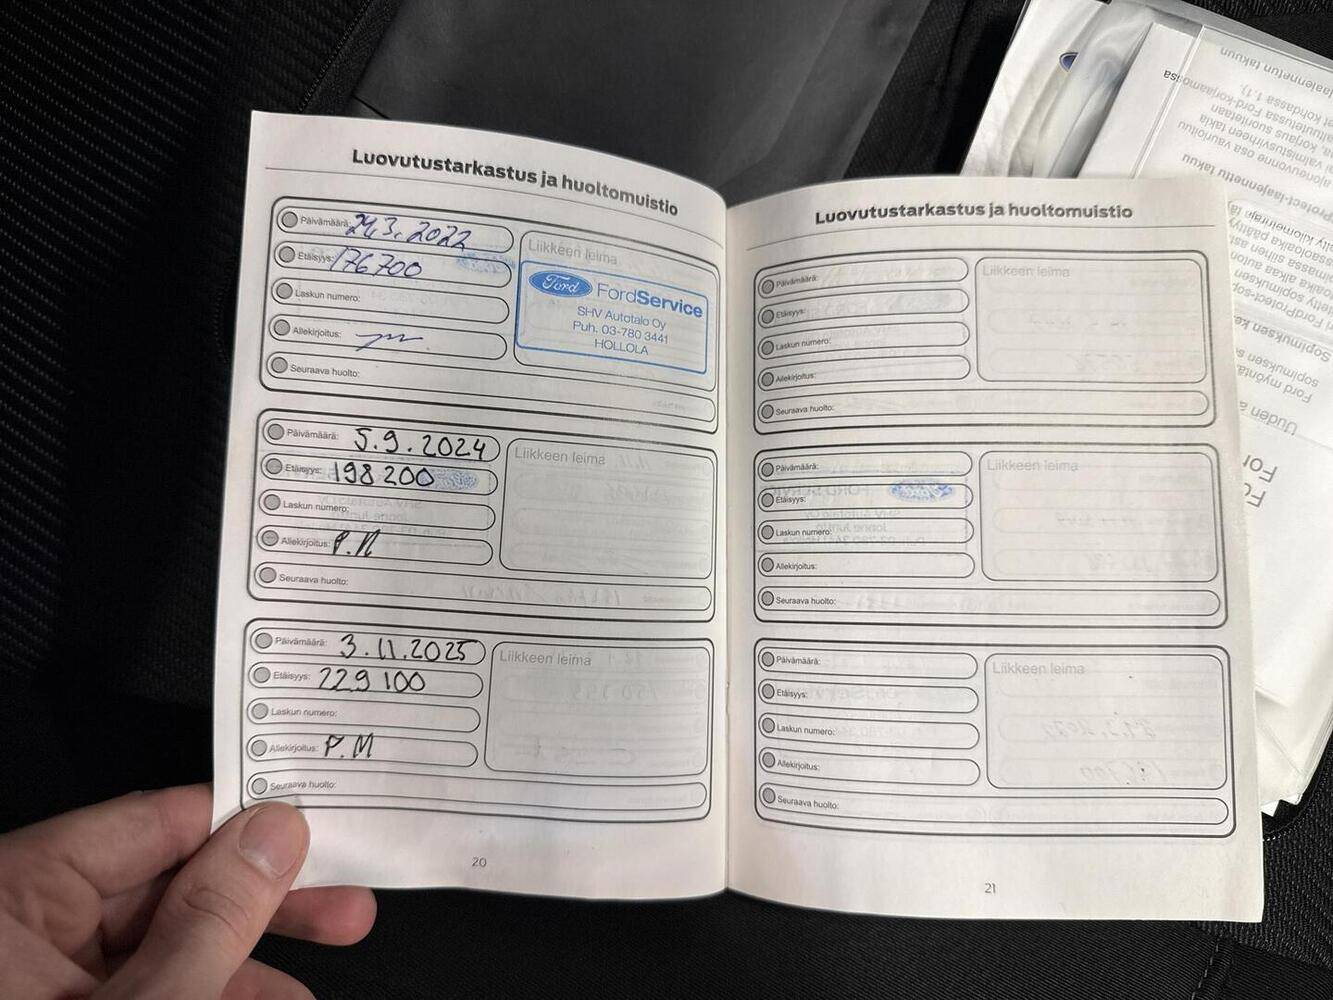 Luovutustarkastus ja huoltomuistio
Päivämäärä: 24.3.2022
Etäisyys: 176700
Laskun numero:
Allekirjoitus:
Seuraava huolto:
Liikkeen leima
Ford FordService
SHV Autotalo Oy
Puh. 03-780 3441
HOLLOLA
Päivämäärä: 5.9.2024
Etäisyys: 198 200
Laskun numero:
Allekirjoitus: P.M
Seuraava huolto:
Liikkeen leima
Päivämäärä: 3.11.2025
Etäisyys: 229 100
Laskun numero:
Allekirjoitus: P.M
Seuraava huolto:
Liikkeen leima
20
Luovutustarkastus ja huoltomuistio
Päivämäärä:
Etäisyys:
Laskun numero:
Allekirjoitus:
Seuraava huolto:
Liikkeen leima
Päivämäärä:
Etäisyys:
Laskun numero:
Allekirjoitus:
Seuraava huolto:
Liikkeen leima
Päivämäärä:
Etäisyys:
Laskun numero:
Allekirjoitus:
Seuraava huolto:
Liikkeen leima
21